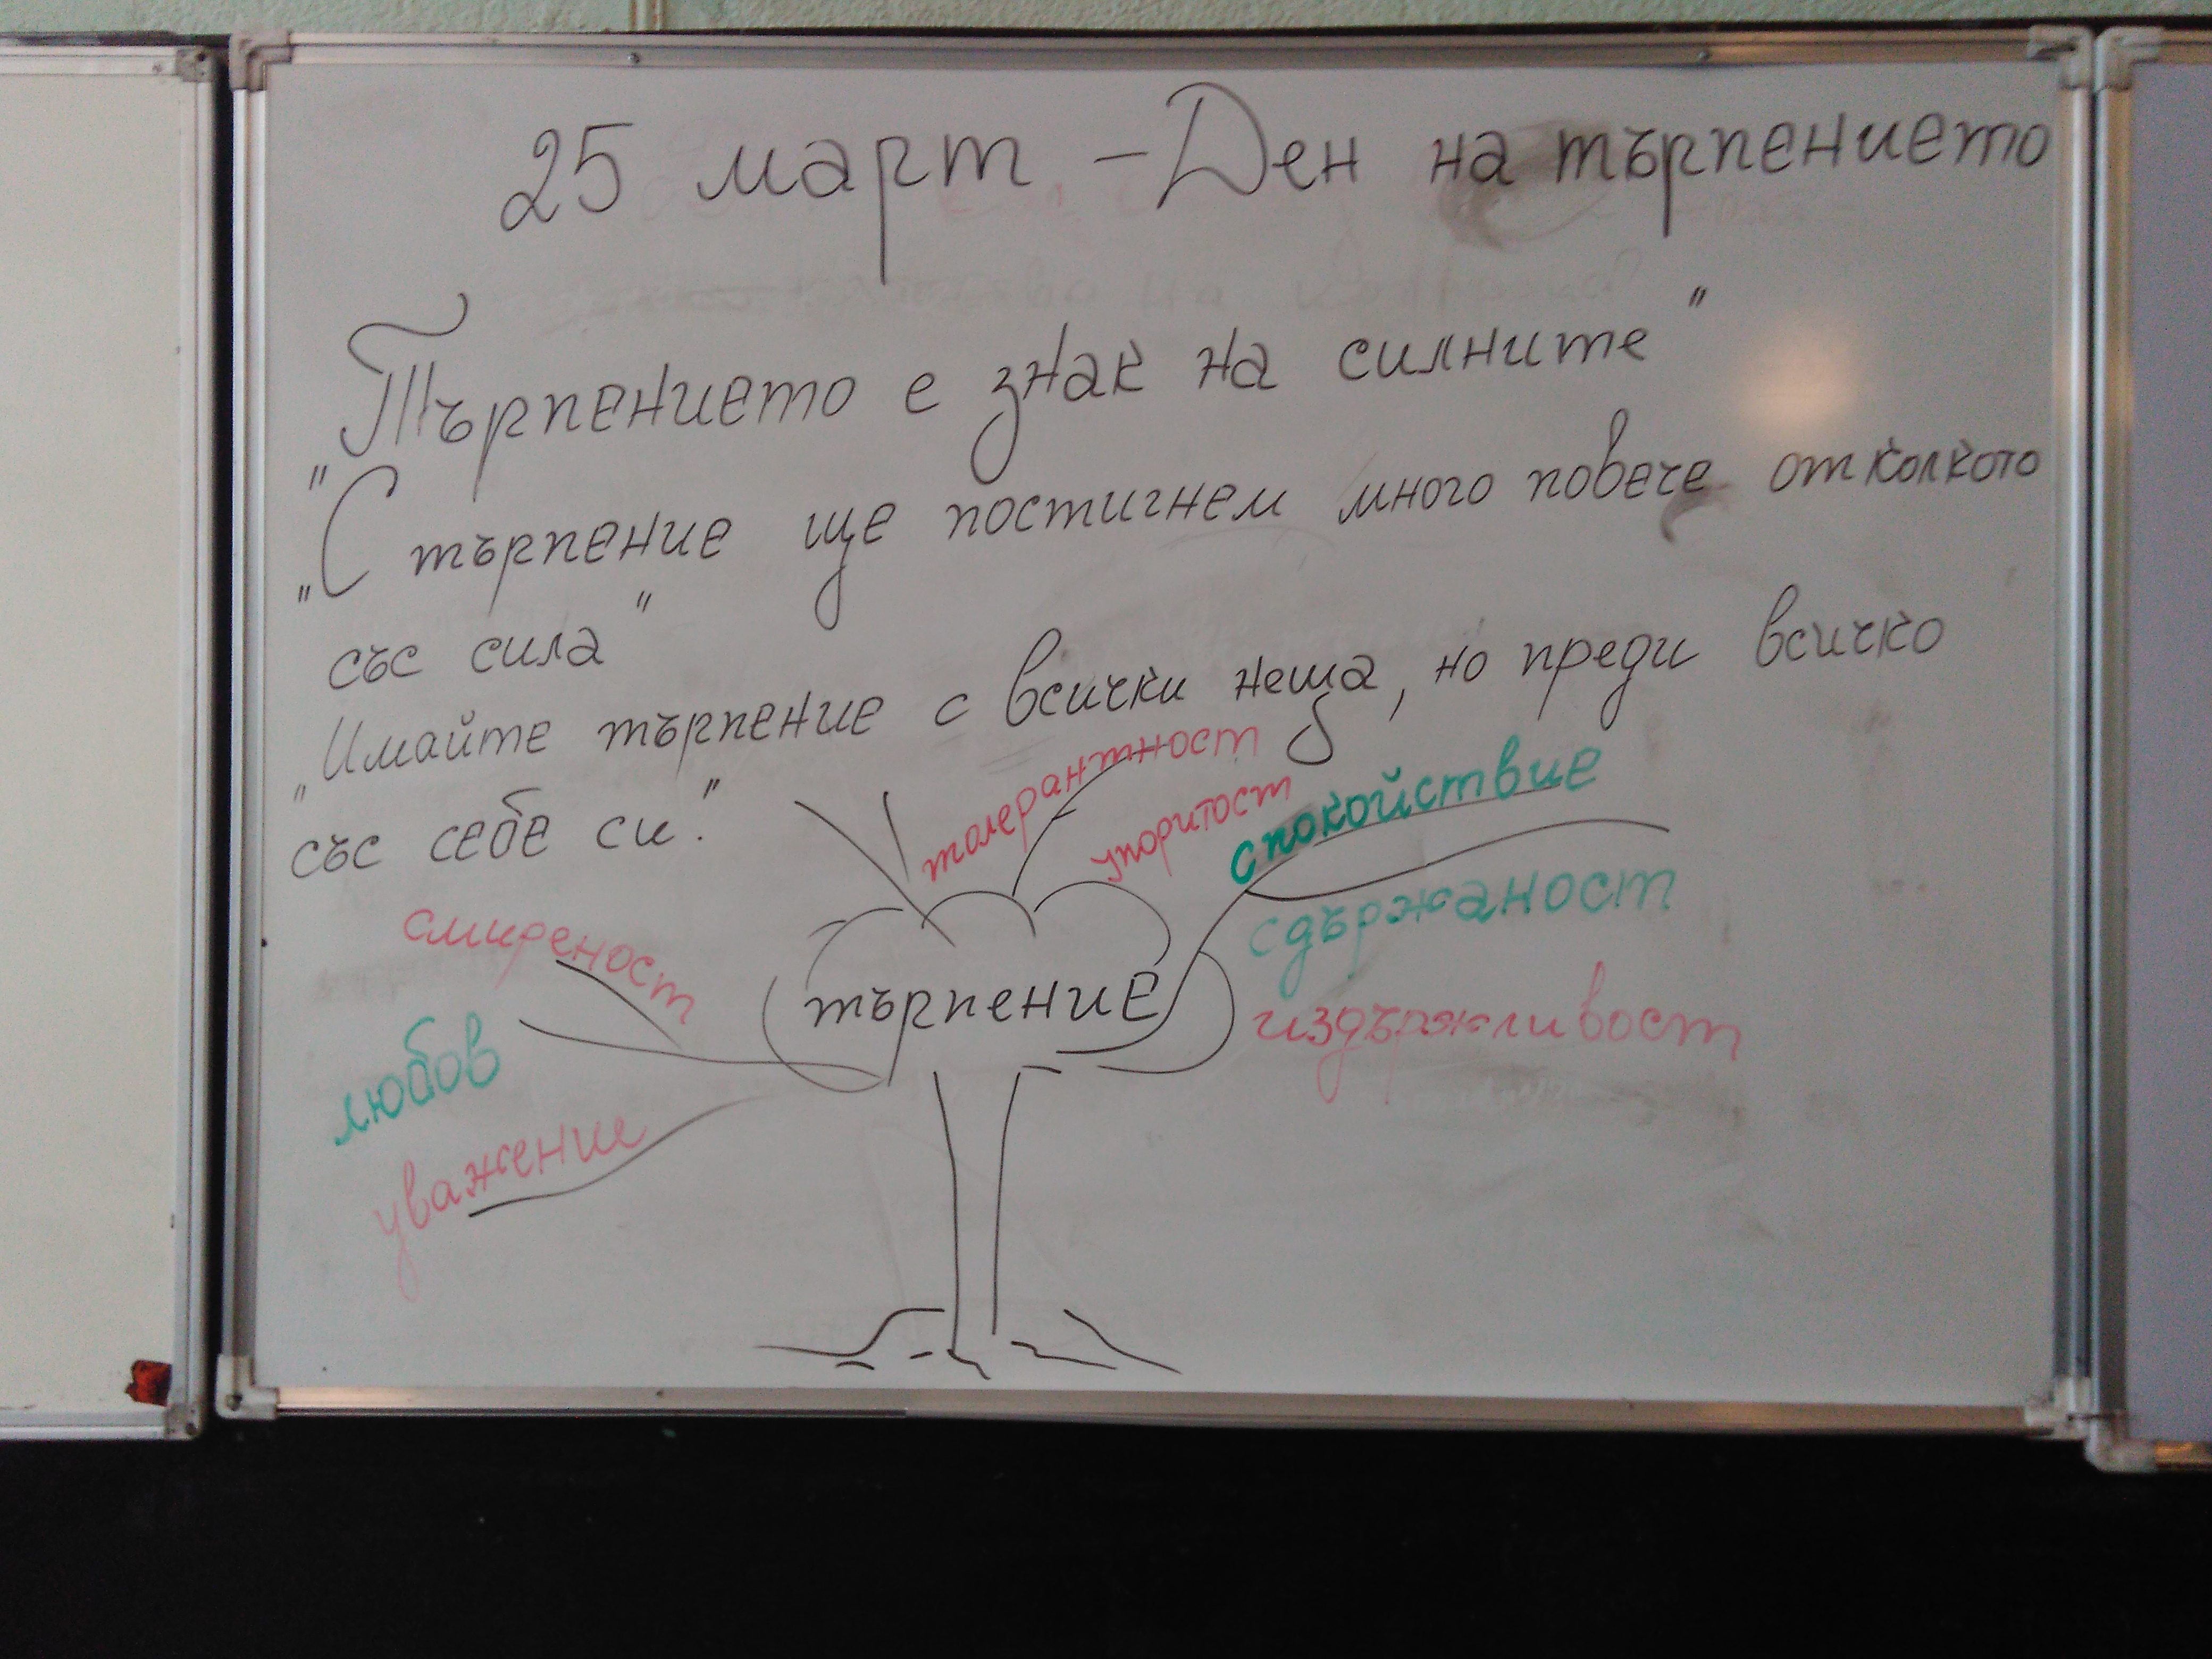 25 март - Ден на търпението
"Търпението е знак на силните"
"С търпение ще постигнем много повече отколкото
със сила"
"Имайте търпение с всички неща, но преди всичко
със себе си."
толерантност
упоритост
спокойствие
смиреност
сдържаност
търпение
издържливост
любов
уважение